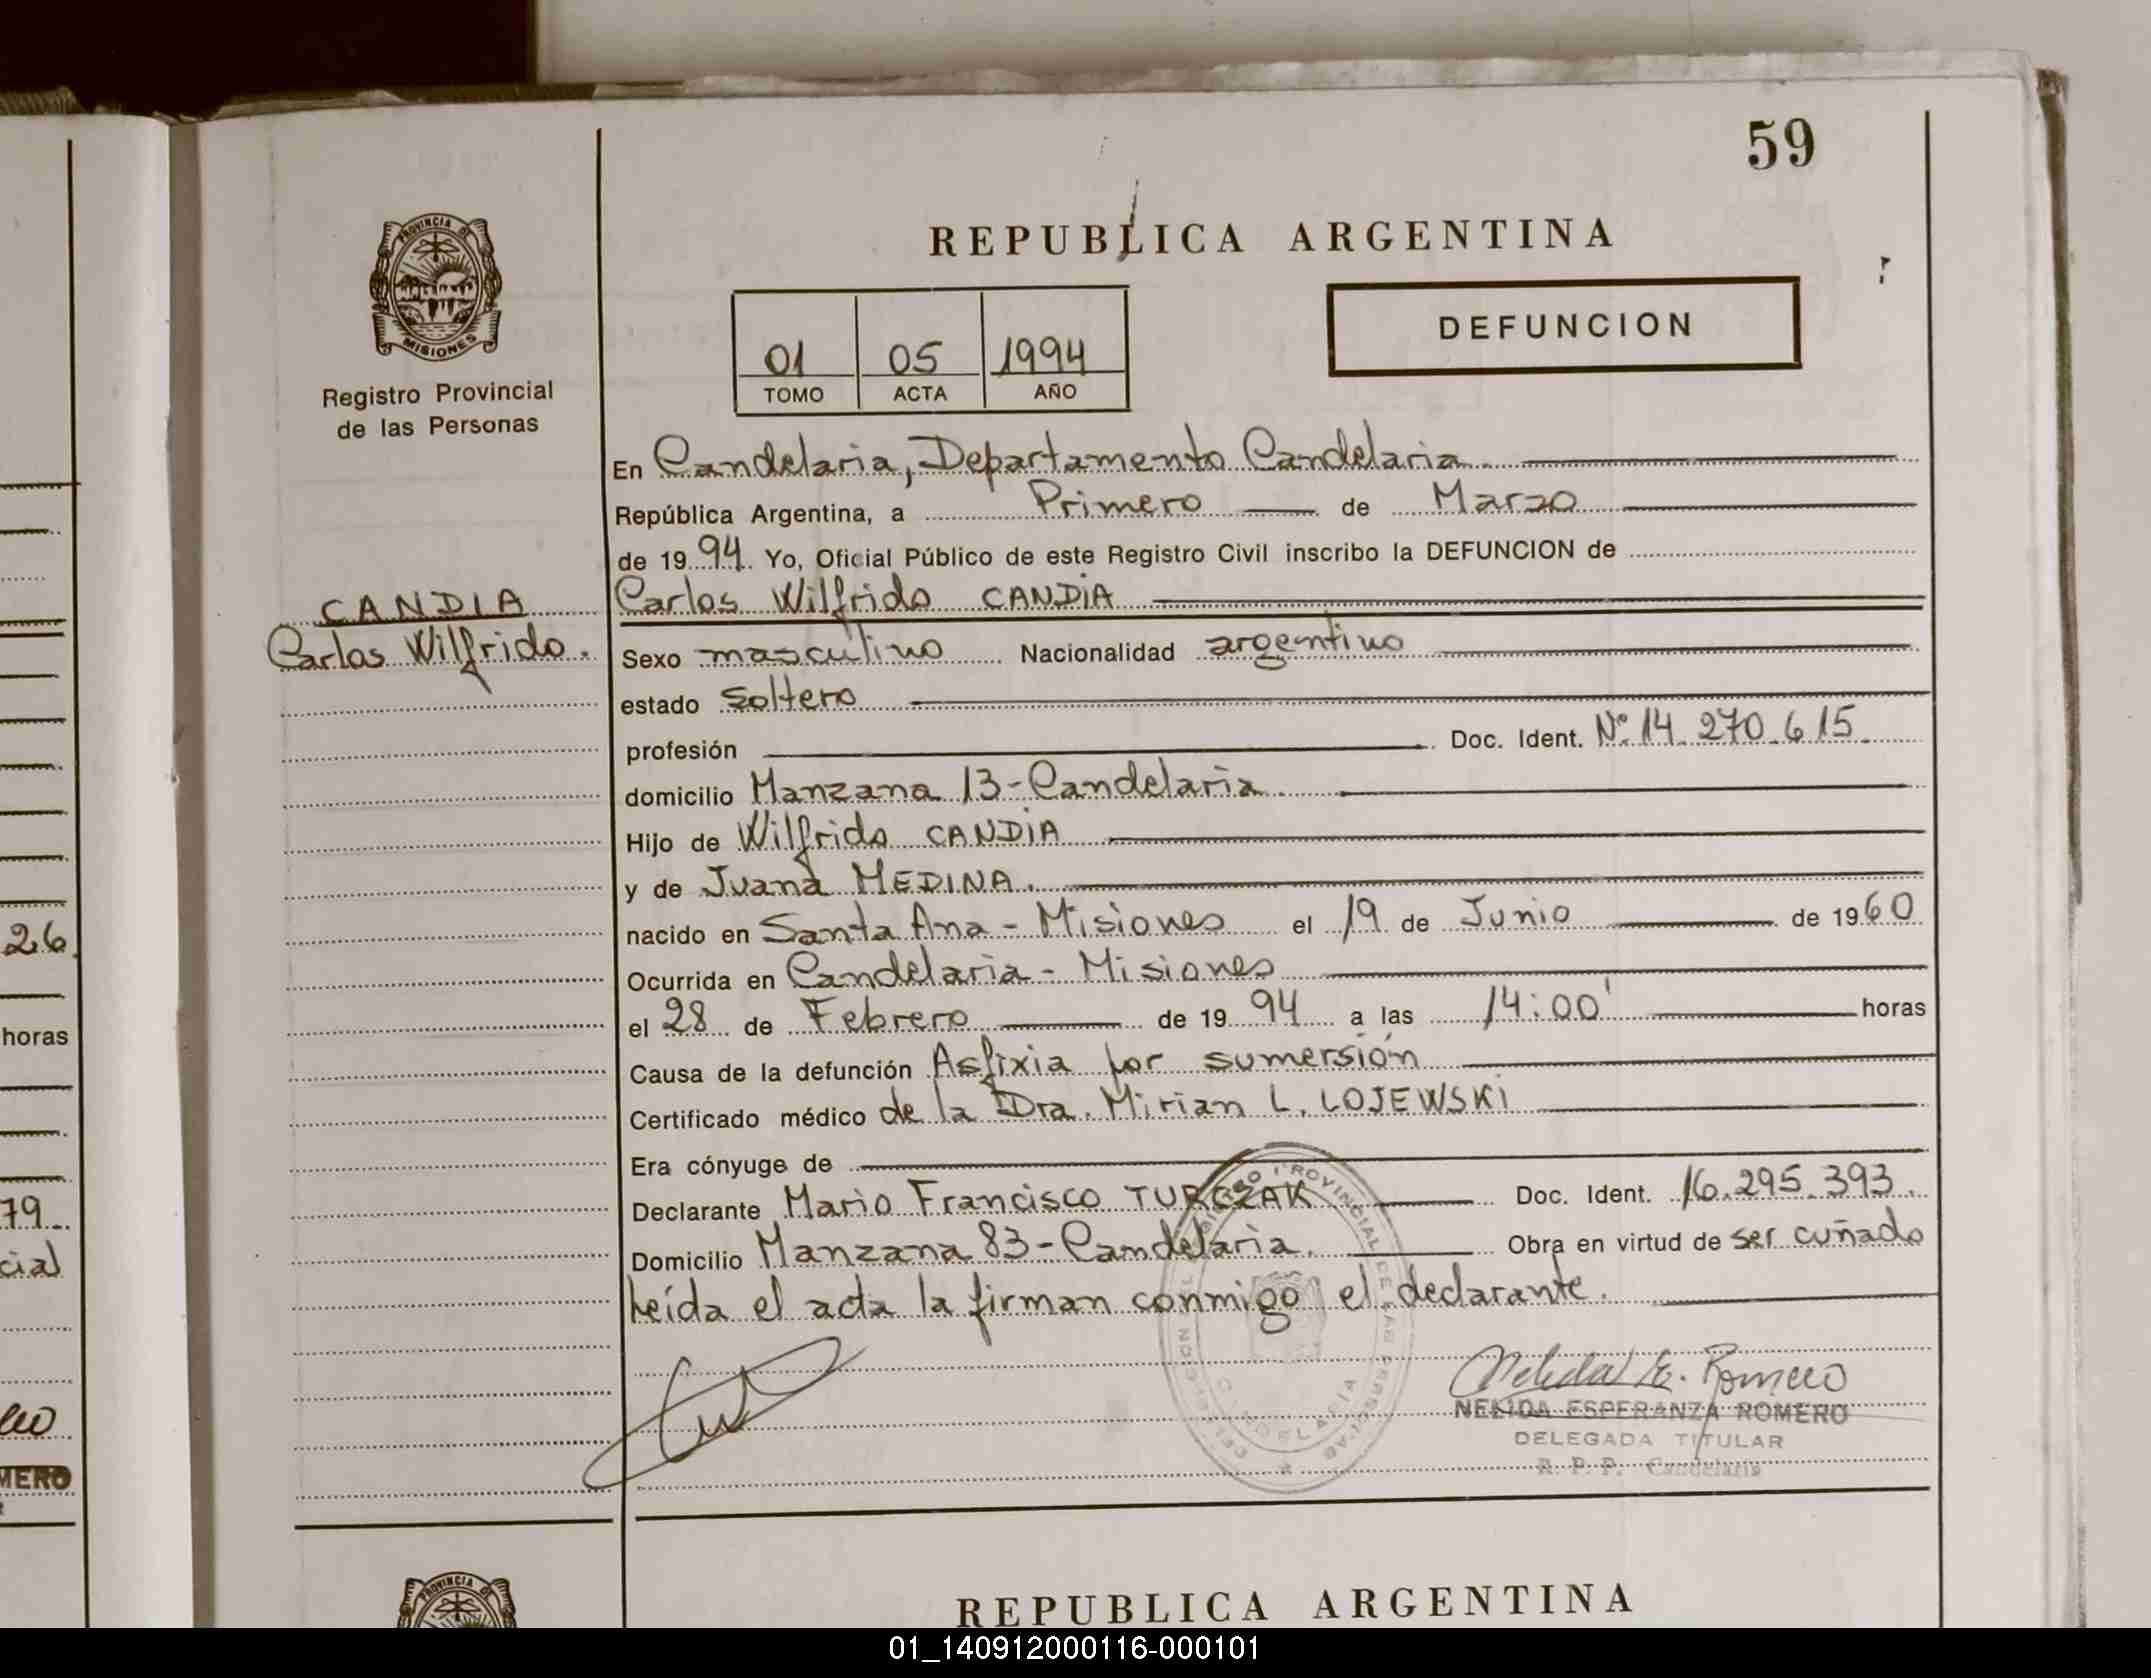 59
PROVINCIA DE
MISIONES
Registro Provincial
de las Personas
REPUBLICA ARGENTINA
DEFUNCION
01 05 1994
TOMO ACTA AÑO
En Candelaria, Departamento Candelaria.
República Argentina, a Primero de Marzo
de 1994. Yo, Oficial Público de este Registro Civil inscribo la DEFUNCION de
CANDIA
Carlos Wilfrido.
Carlos Wilfrido CANDIA
Sexo masculino Nacionalidad argentino
estado soltero
profesión Doc. Ident. Nº 14.270.615.
domicilio Manzana 13-Candelaria.
Hijo de Wilfrido CANDIA
y de Juana MEDINA.
nacido en Santa Ana - Misiones el 19 de Junio de 1960
Ocurrida en Candelaria - Misiones
el 28 de Febrero de 1994 a las 14:00' horas
Causa de la defunción Asfixia por sumersión
Certificado médico de la Dra. Mirian L. LOJEWSKI
Era cónyuge de
Declarante Mario Francisco TURCZAK Doc. Ident. 16.295.393.
Domicilio Manzana 83-Candelaria. Obra en virtud de ser cuñado
Leída el acta la firman conmigo el declarante.
Nelida E. Romero
NELIDA ESPERANZA ROMERO
DELEGADA TITULAR
R. P. P. Candelaria
26.
horas
79.
cial
MERO
PROVINCIA DE
REPUBLICA ARGENTINA
01_140912000116-000101